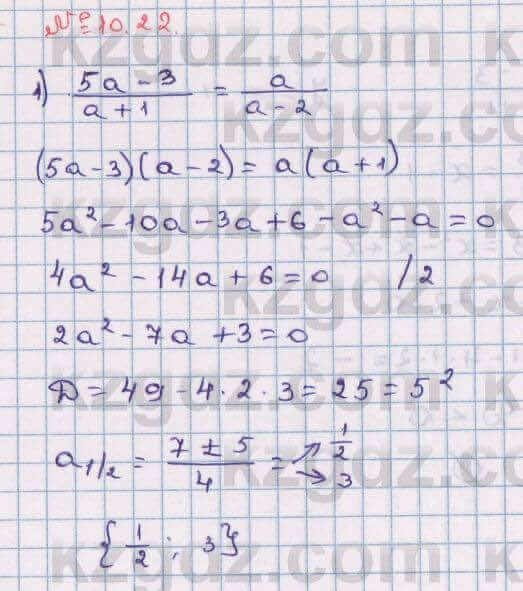 №10.22.
1) (5a - 3)/(a + 1) = a/(a - 2)
(5a - 3)(a - 2) = a(a + 1)
5a² - 10a - 3a + 6 - a² - a = 0
4a² - 14a + 6 = 0 /2
2a² - 7a + 3 = 0
D = 49 - 4 · 2 · 3 = 25 = 5²
a₁/₂ = (7 ± 5)/4 = ↗ 1/2 → 3
{1/2; 3}
kzgdz.com